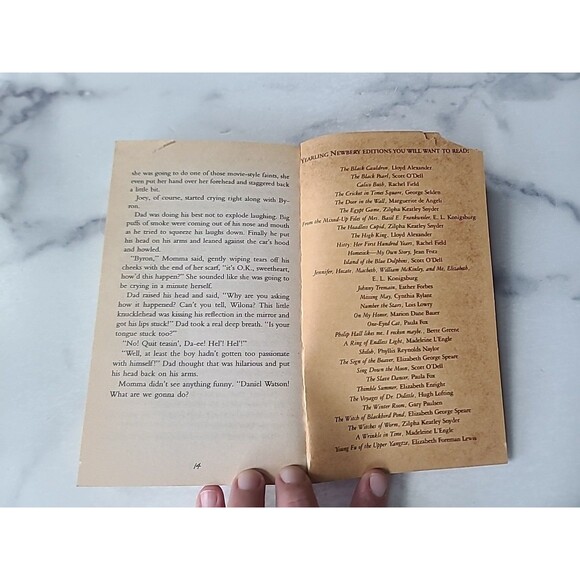 she was going to do one of those movie-style faints, she
even put her hand over her forehead and staggered back
a little bit.
Joey, of course, started crying right along with By-
ron.
Dad was doing his best not to explode laughing. Big
puffs of smoke were coming out of his nose and mouth
as he tried to squeeze his laughs down. Finally he put
his head on his arms and leaned against the car's hood
and howled.
"Byron," Momma said, gently wiping tears off his
cheeks with the end of her scarf, "it's O.K., sweetheart,
how'd this happen?" She sounded like she was going to
be crying in a minute herself.
Dad raised his head and said, "Why are you asking
how it happened? Can't you tell, Wilona? This little
knucklehead was kissing his reflection in the mirror and
got his lips stuck!" Dad took a real deep breath. "Is your
tongue stuck too?"
"No! Quit teasin', Da-ee! Hel'! Hel'!"
"Well, at least the boy hadn't gotten too passionate
with himself!" Dad thought that was hilarious and put
his head back on his arms.
Momma didn't see anything funny. "Daniel Watson!
What are we gonna do?
14
YEARLING NEWBERY EDITIONS YOU WILL WANT TO READ:
The Black Cauldron, Lloyd Alexander
The Black Pearl, Scott O'Dell
Calico Bush, Rachel Field
The Cricket in Times Square, George Selden
The Door in the Wall, Marguerite de Angeli
The Egypt Game, Zilpha Keatley Snyder
From the Mixed-Up Files of Mrs. Basil E. Frankweiler, E. L. Konigsburg
The Headless Cupid, Zilpha Keatley Snyder
The High King, Lloyd Alexander
Hitty: Her First Hundred Years, Rachel Field
Homesick—My Own Story, Jean Fritz
Island of the Blue Dolphins, Scott O'Dell
Jennifer, Hecate, Macbeth, William McKinley, and Me, Elizabeth,
E. L. Konigsburg
Johnny Tremain, Esther Forbes
Missing May, Cynthia Rylant
Number the Stars, Lois Lowry
On My Honor, Marion Dane Bauer
One-Eyed Cat, Paula Fox
Philip Hall likes me. I reckon maybe., Bette Greene
A Ring of Endless Light, Madeleine L'Engle
Shiloh, Phyllis Reynolds Naylor
The Sign of the Beaver, Elizabeth George Speare
Sing Down the Moon, Scott O'Dell
The Slave Dancer, Paula Fox
Thimble Summer, Elizabeth Enright
The Voyages of Dr. Dolittle, Hugh Lofting
The Winter Room, Gary Paulsen
The Witch of Blackbird Pond, Elizabeth George Speare
The Witches of Worm, Zilpha Keatley Snyder
A Wrinkle in Time, Madeleine L'Engle
Young Fu of the Upper Yangtze, Elizabeth Foreman Lewis